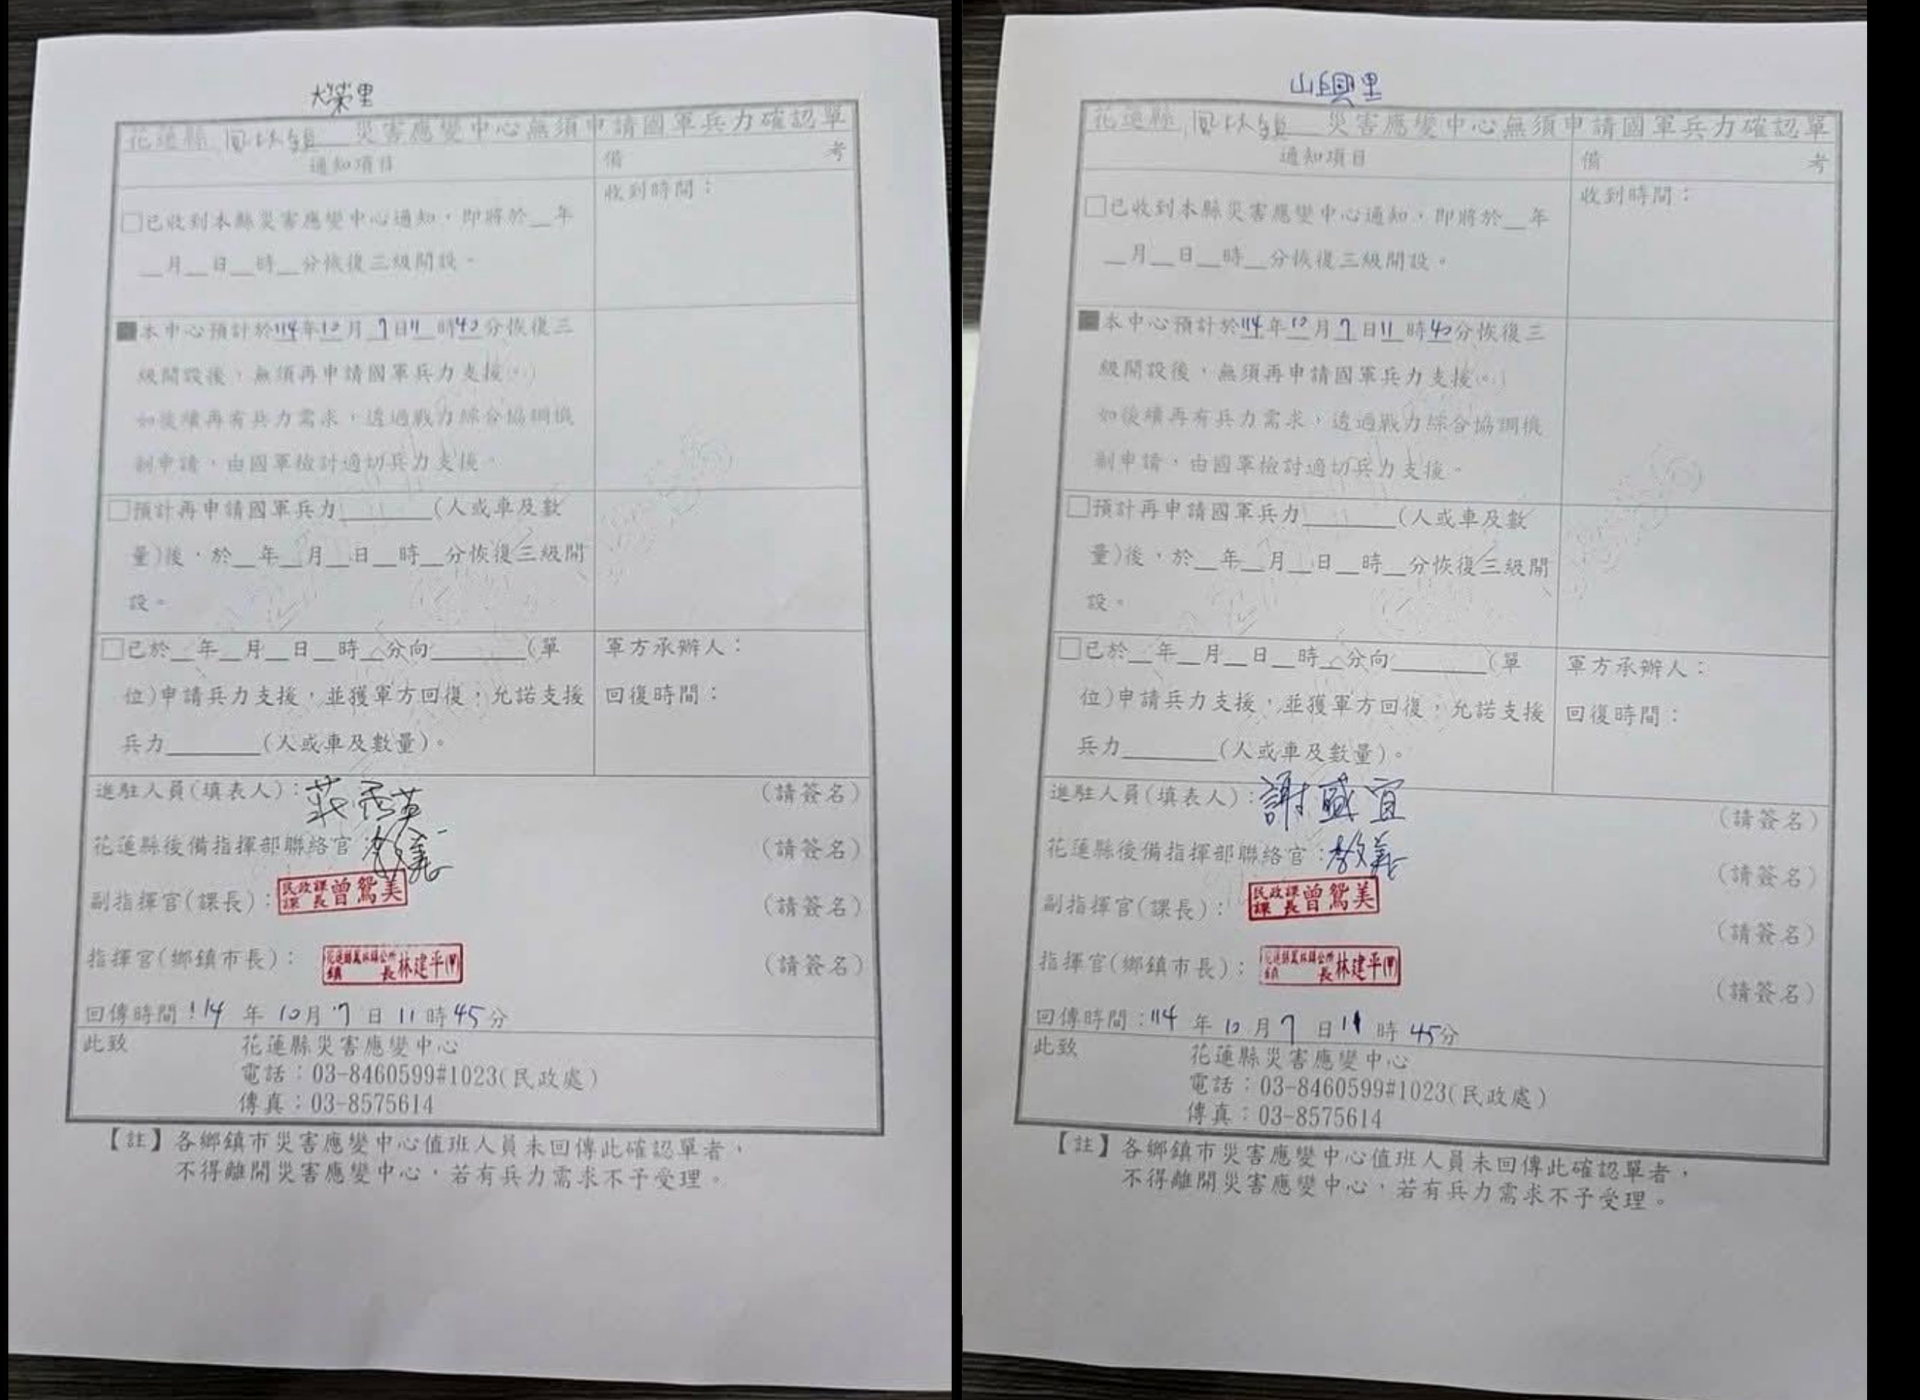 大榮里
花蓮縣 鳳林鎮 災害應變中心無須申請國軍兵力確認單
通知項目
備 考
□已收到本縣災害應變中心通知，即將於__年
__月__日__時__分恢復三級開設。
收到時間：
■本中心預計於114年10月7日11時40分恢復三
級開設後，無須再申請國軍兵力支援(。)
如後續再有兵力需求，透過戰力綜合協調機
制申請，由國軍檢討適切兵力支援。
□預計再申請國軍兵力________(人或車及數
量)後，於__年__月__日__時__分恢復三級開
設。
□已於__年__月__日__時__分向________(單
位)申請兵力支援，並獲軍方回復，允諾支援
兵力________(人或車及數量)。
軍方承辦人：
回復時間：
進駐人員(填表人)：莊 英 (請簽名)
花蓮縣後備指揮部聯絡官： (請簽名)
副指揮官(課長)：民政課課長曾鴛美 (請簽名)
指揮官(鄉鎮市長)：花蓮縣鳳林鎮公所鎮長林建平(甲) (請簽名)
回傳時間：114 年 10月 7 日 11 時45分
此致 花蓮縣災害應變中心
電話：03-8460599#1023(民政處)
傳真：03-8575614
【註】各鄉鎮市災害應變中心值班人員未回傳此確認單者，
不得離開災害應變中心，若有兵力需求不予受理。
山興里
花蓮縣 鳳林鎮 災害應變中心無須申請國軍兵力確認單
通知項目
備 考
□已收到本縣災害應變中心通知，即將於__年
__月__日__時__分恢復三級開設。
收到時間：
■本中心預計於114年10月7日11時40分恢復三
級開設後，無須再申請國軍兵力支援(。)
如後續再有兵力需求，透過戰力綜合協調機
制申請，由國軍檢討適切兵力支援。
□預計再申請國軍兵力________(人或車及數
量)後，於__年__月__日__時__分恢復三級開
設。
□已於__年__月__日__時__分向________(單
位)申請兵力支援，並獲軍方回復，允諾支援
兵力________(人或車及數量)。
軍方承辦人：
回復時間：
進駐人員(填表人)：謝盛宜 (請簽名)
花蓮縣後備指揮部聯絡官： (請簽名)
副指揮官(課長)：民政課課長曾鴛美 (請簽名)
指揮官(鄉鎮市長)：花蓮縣鳳林鎮公所鎮長林建平(甲) (請簽名)
回傳時間：114 年 10 月 7 日 11 時 45分
此致 花蓮縣災害應變中心
電話：03-8460599#1023(民政處)
傳真：03-8575614
【註】各鄉鎮市災害應變中心值班人員未回傳此確認單者，
不得離開災害應變中心，若有兵力需求不予受理。